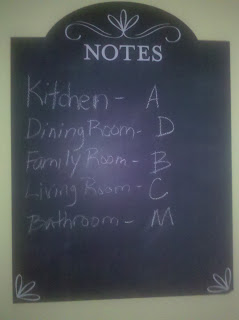 NOTES
Kitchen - A
Dining Room - D
Family Room - B
Living Room - C
Bathroom - M